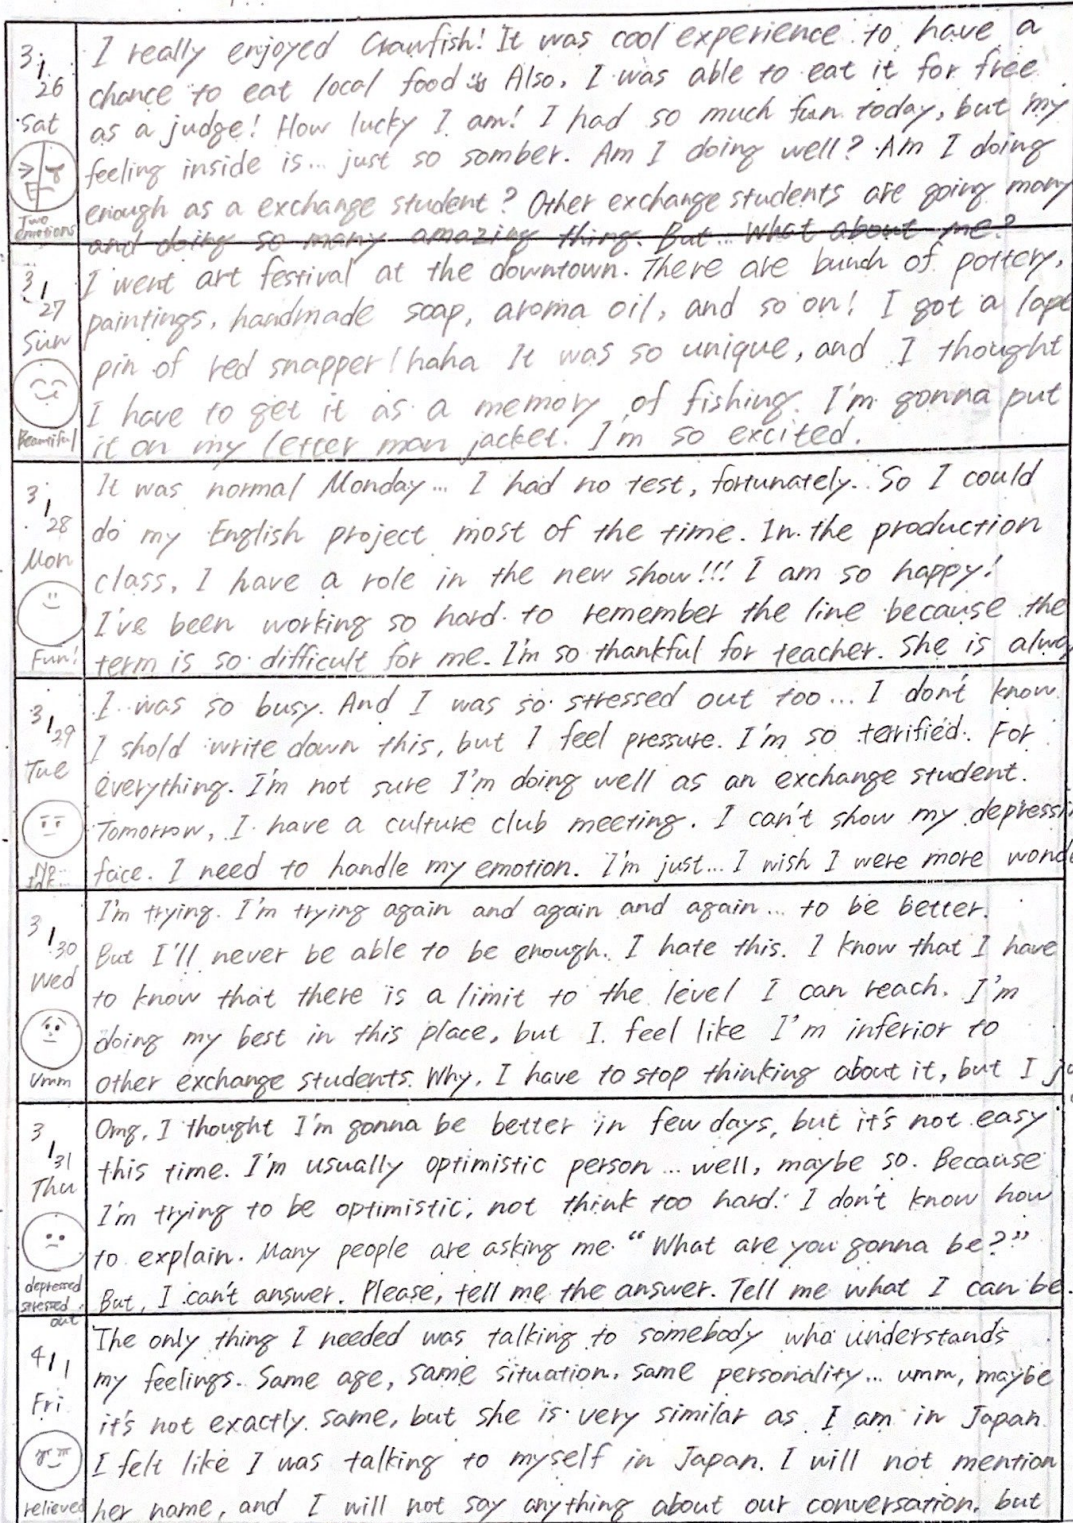 3/26
Sat
Two emotions
I really enjoyed Crawfish! It was cool experience to have a
chance to eat local food Also, I was able to eat it for free
as a judge! How lucky I am! I had so much fun today, but my
feeling inside is... just so somber. Am I doing well? Am I doing
enough as a exchange student? Other exchange students are going many
and doing so many amazing thing. But... What about me?
3/27
Sun
Beautiful
I went art festival at the downtown. There are bunch of pottery,
paintings, handmade soap, aroma oil, and so on! I got a lape
pin of red snapper! haha It was so unique, and I thought
I have to get it as a memory of fishing. I'm gonna put
it on my letter man jacket. I'm so excited.
3/28
Mon
Fun!
It was normal Monday... I had no test, fortunately. So I could
do my English project most of the time. In the production
class, I have a role in the new show!!! I am so happy!
I've been working so hard to remember the line because the
term is so difficult for me. I'm so thankful for teacher. She is alwa
3/29
Tue
I was so busy. And I was so stressed out too... I don't know
I shold write down this, but I feel pressure. I'm so terrified. For
everything. I'm not sure I'm doing well as an exchange student.
Tomorrow, I have a culture club meeting. I can't show my depressi
face. I need to handle my emotion. I'm just... I wish I were more wonde
3/30
Wed
Umm
I'm trying. I'm trying again and again and again... to be better.
But I'll never be able to be enough. I hate this. I know that I have
to know that there is a limit to the level I can reach. I'm
doing my best in this place, but I feel like I'm inferior to
other exchange students. Why, I have to stop thinking about it, but I ju
3/31
Thu
depressed
stressed
out
Omg, I thought I'm gonna be better in few days, but it's not easy
this time. I'm usually optimistic person... well, maybe so. Because
I'm trying to be optimistic, not think too hard. I don't know how
to explain. Many people are asking me "What are you gonna be?"
But, I can't answer. Please, tell me the answer. Tell me what I can be.
4/1
Fri
relieved
The only thing I needed was talking to somebody who understands
my feelings. Same age, same situation, same personality... umm, maybe
it's not exactly same, but she is very similar as I am in Japan
I felt like I was talking to myself in Japan. I will not mention
her name, and I will not say anything about our conversation, but